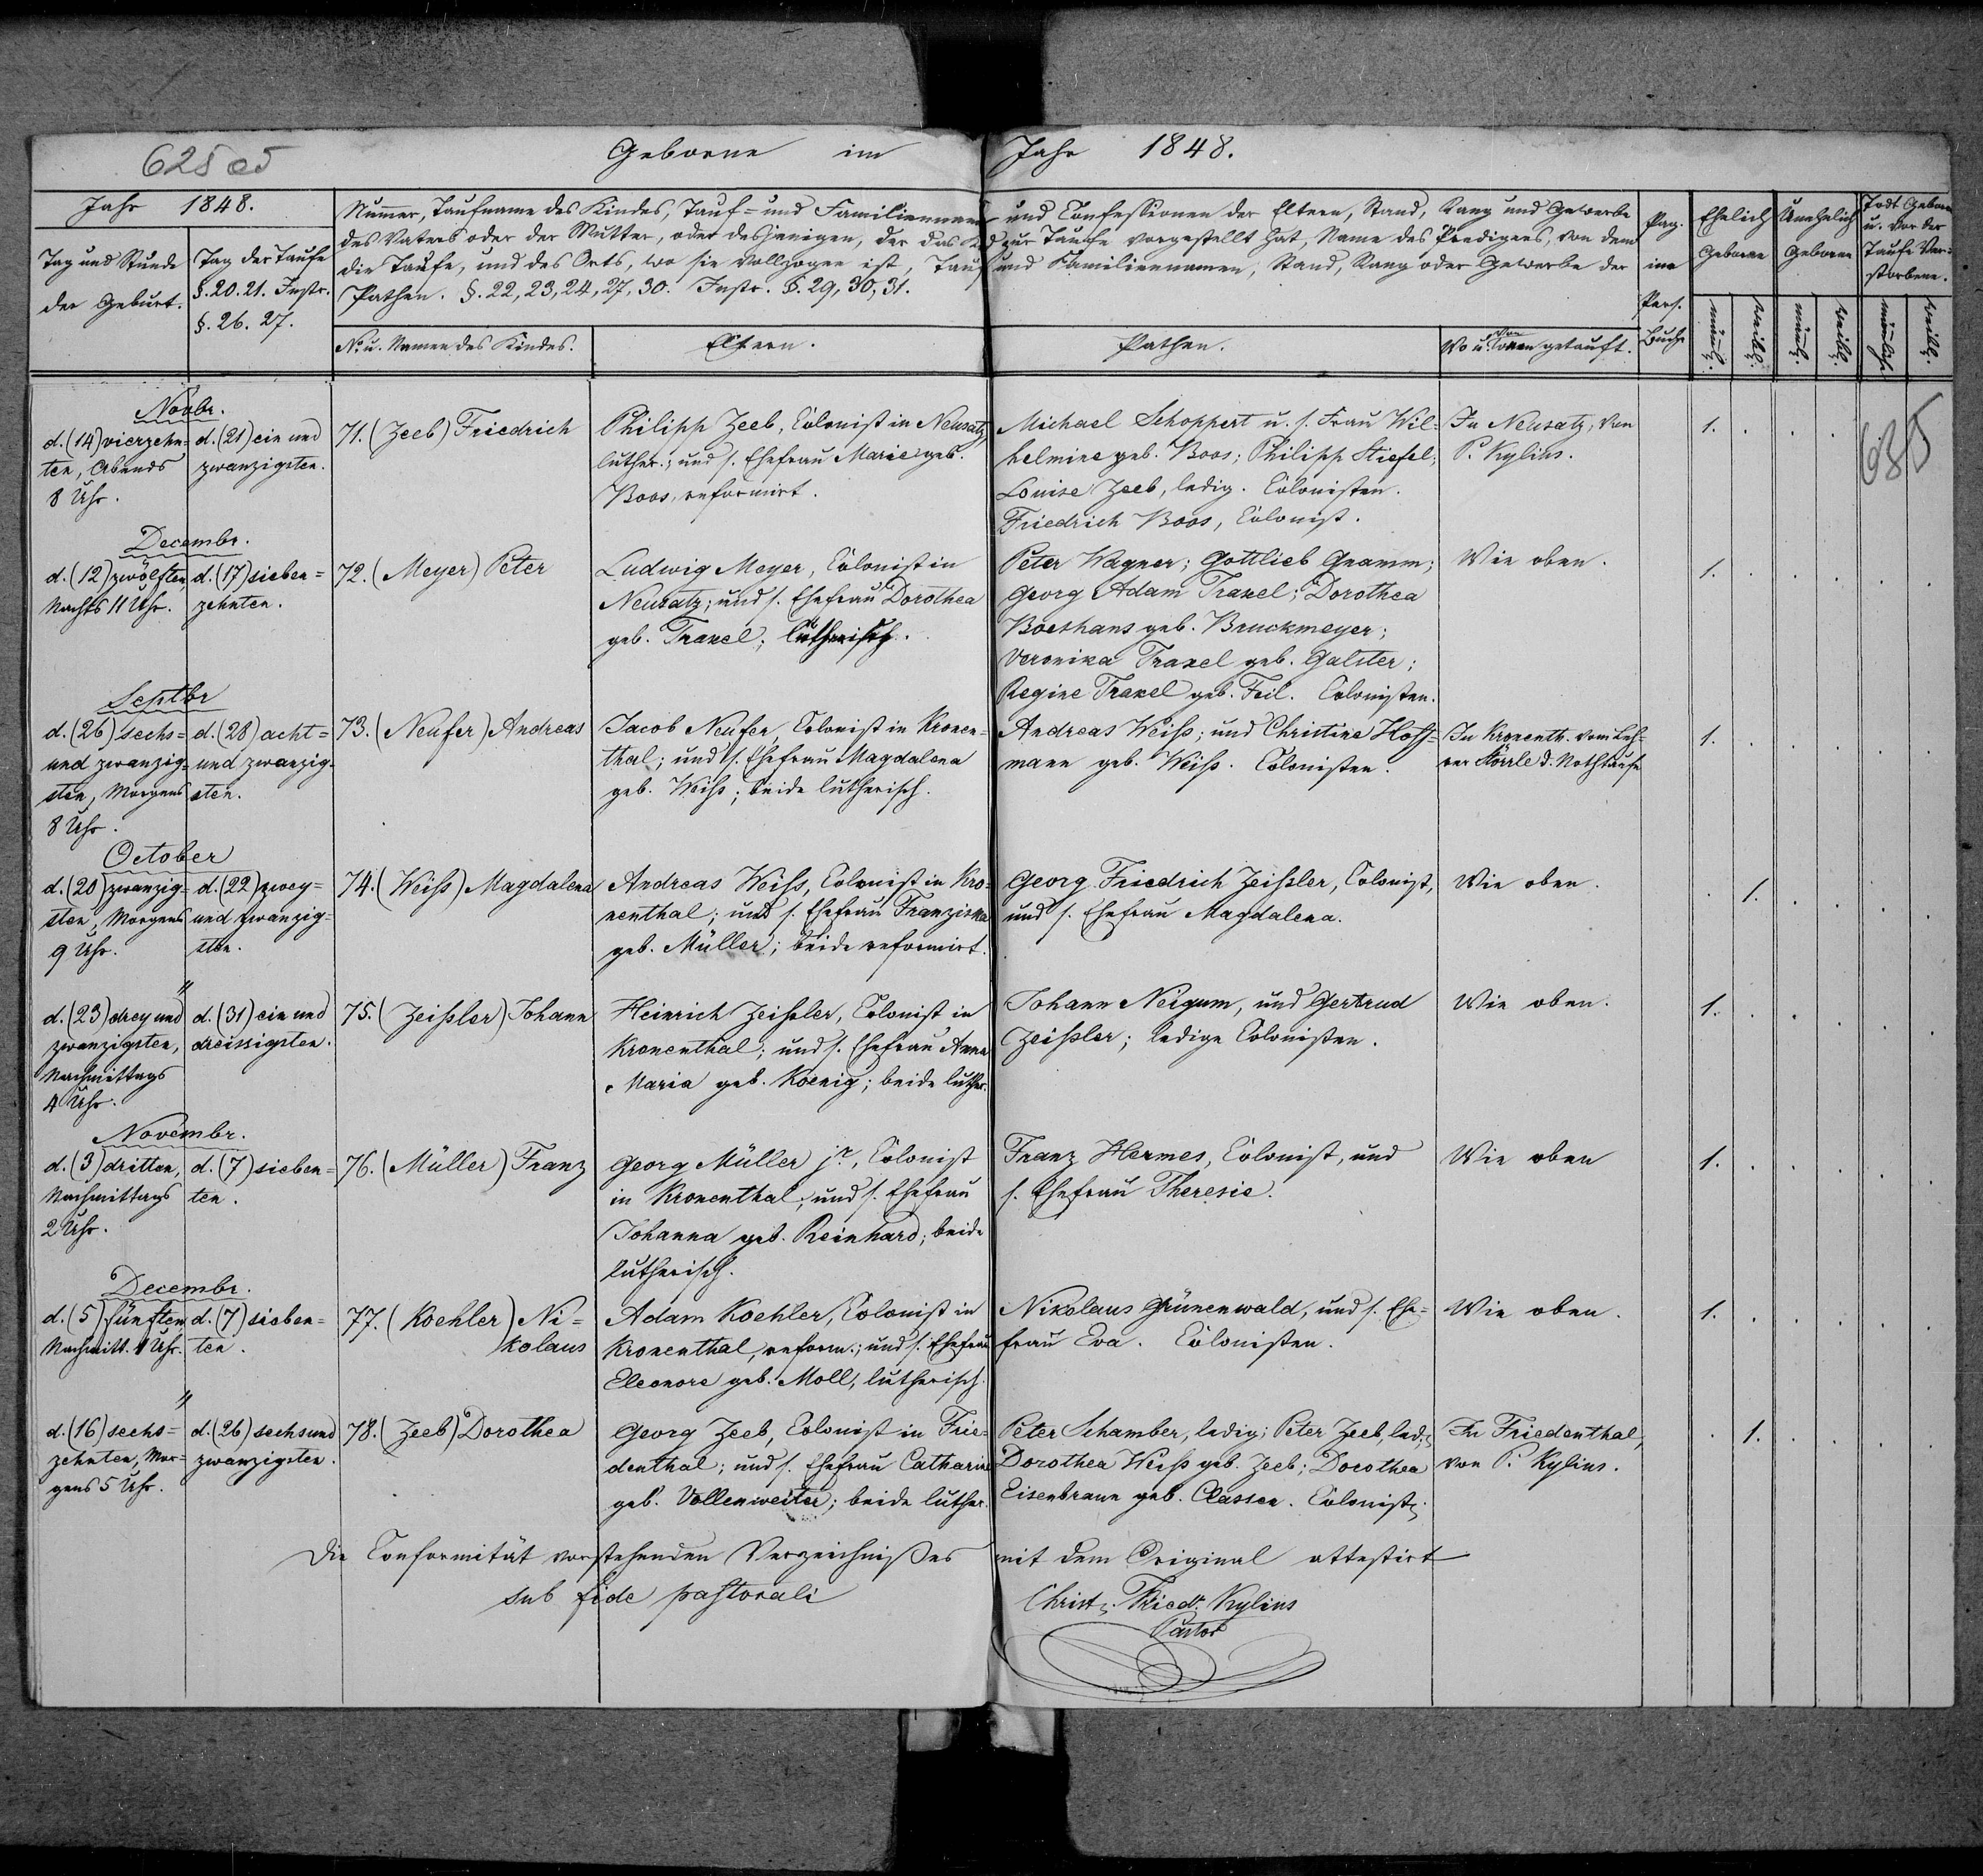 625 об
Geborne im Jahr 1848.
Jahr 1848.
Tag und Stunde
der Geburt.
Tag der Taufe
§. 20. 21. Instr.
§. 26. 27.
Nummer, Taufname des Kindes, Tauf= und Familiennamen und Confessionen der Eltern, Stand, Rang und Gewerbe
des Vaters oder der Mutter, oder desjenigen, der das Kind zur Taufe vorgestellt hat, Name des Predigers, von dem
die Taufe, und des Orts, wo sie vollzogen ist, Tauf und Familiennamen, Stand, Rang oder Gewerbe der
Pathen. §. 22, 23, 24, 27, 30. Instr. §. 29, 30, 31.
No. u. Namen des Kindes.
Eltern.
Pathen.
Wo u. von wem getauft.
Pag.
im
Pers.
Buche
Ehelich
Geborne
Unehelich
Geborne
Todt Geborne
u. vor der
Taufe Ver=
storbene.
männl.
weibl.
männl.
weibl.
männliche
weibl.
635
Novbr.
d. (14) vierzehn=
ten, Abends
8 Uhr.
d. (21) ein und
zwanzigsten.
71. (Zeeb) Friedrich
Philipp Zeeb, Colonist in Neusatz,
luther.; und s. Ehefrau Marie geb.
Boos, reformirt.
Michael Schoppert u. s. Frau Wil=
helmine geb. Boos; Philipp Stiefel;
Louise Zeeb, ledig. Colonisten.
Friedrich Boos, Colonist.
In Neusatz, von
P. Kylius.
1.
Decembr.
d. (12) zwölften,
Nachts 11 Uhr.
d. (17) sieben=
zehnten.
72. (Meyer) Peter
Ludwig Meyer, Colonist in
Neusatz; und s. Ehefrau Dorothea
geb. Traxel; lutherisch.
Peter Wagner; Gottlieb Gramm;
Georg Adam Traxel; Dorothea
Boeshans geb. Bruckmeyer;
Veronika Traxel geb. Galster;
Regine Traxel geb. Feil. Colonisten.
Wie oben.
1.
Septbr
d. (26) sechs=
und zwanzig=
sten, Morgens
8 Uhr.
d. (28) acht=
und zwanzig=
sten.
73. (Neufer) Andreas
Jacob Neufer, Colonist in Kronen=
thal; und s. Ehefrau Magdalena
geb. Weiß; beide lutherisch.
Andreas Weiß; und Christine Hoff=
mann geb. Weiß. Colonisten.
In Kronenth. vom Leh=
rer Störrle d. Nothtaufe
1.
October
d. (20) zwanzig=
sten, Morgens
9 Uhr.
d. (22) zwey=
und zwanzig=
sten.
74. (Weiß) Magdalena
Andreas Weiß, Colonist in Kro=
nenthal; und s. Ehefrau Franziska
geb. Müller; beide reformirt.
Georg Friedrich Zeißler, Colonist,
und s. Ehefrau Magdalena.
Wie oben.
1.
"
d. (23) drey und
zwanzigsten,
Nachmittags
4 Uhr.
d. (31) ein und
dreissigsten.
75. (Zeißler) Johann
Heinrich Zeißler, Colonist in
Kronenthal; und s. Ehefrau Anna
Maria geb. Koenig; beide luther.
Johann Neigum, und Gertrud
Zeißler; ledige Colonisten.
Wie oben.
1.
Novembr.
d. (3) dritten,
Nachmittags
2 Uhr.
d. (7) sieben=
ten.
76. (Müller) Franz
Georg Müller jr., Colonist
in Kronenthal; und s. Ehefrau
Johanna geb. Reinhard; beide
lutherisch.
Franz Hermes, Colonist, und
s. Ehefrau Theresie.
Wie oben
1.
Decembr.
d. (5) fünften
Nachmitt. 1 Uhr.
d. (7) sieben=
ten.
77. (Koehler) Ni=
kolaus
Adam Koehler, Colonist in
Kronenthal, reform.; und s. Ehefrau
Eleonore geb. Moll, lutherisch.
Nikolaus Grünenwald, und s. Ehe=
frau Eva. Colonisten.
Wie oben.
1.
"
d. (16) sechs=
zehnten, Mor=
gens 5 Uhr.
d. (26) sechs und
zwanzigsten.
78. (Zeeb) Dorothea
Georg Zeeb, Colonist in Frie=
denthal; und s. Ehefrau Catharine
geb. Vollenweiter; beide luther.
Peter Schamber, ledig; Peter Zeeb, led.;
Dorothea Weiß geb. Zeeb; Dorothea
Eisenbraun geb. Classen. Colonist.
In Friedenthal,
von P. Kylius.
1.
Die Conformität vorstehenden Verzeichnißes mit dem Original attestirt
sub fide pastorali
Christ. Friedr. Kylius
Pastor